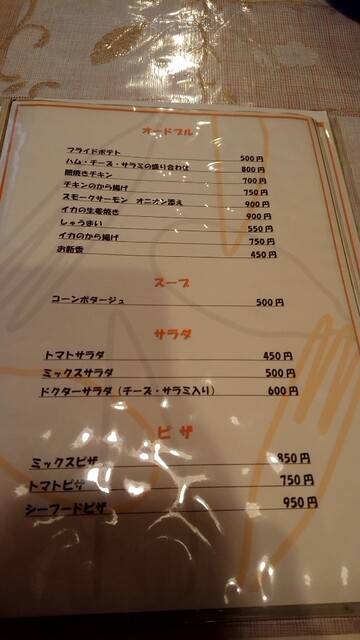 オードブル
フライドポテト 500円
ハム・チーズ・サラミの盛り合わせ 800円
照焼きチキン 700円
チキンのから揚げ 750円
スモークサーモン オニオン添え 900円
イカの生姜焼き 900円
しゅうまい 550円
イカのから揚げ 750円
お新香 450円
スープ
コーンポタージュ 500円
サラダ
トマトサラダ 450円
ミックスサラダ 500円
ドクターサラダ（チーズ・サラミ入り） 600円
ピザ
ミックスピザ 850円
トマトピザ 750円
シーフードピザ 950円